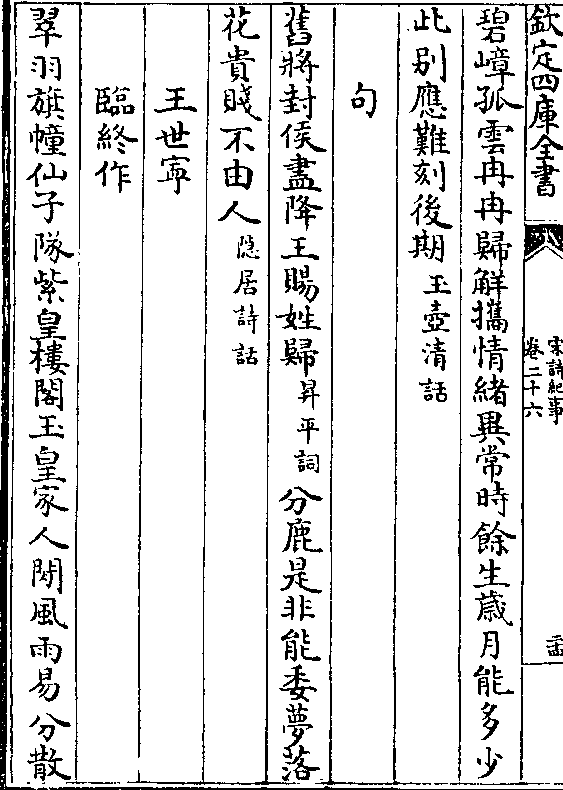 欽定四庫全書
宋詩紀事
卷二十六
碧嶂孤雲冉冉歸解攜情緒異常時餘生歲月能多少
此别應難刻後期玉壺清話
句
舊將封侯盡降王賜姓歸昇平詞分鹿是非能委夢落
花貴賤不由人隠居詩話
王世寧
臨終作
翠羽旗幢仙子隊紫皇樓閣玉皇家人間風雨易分散